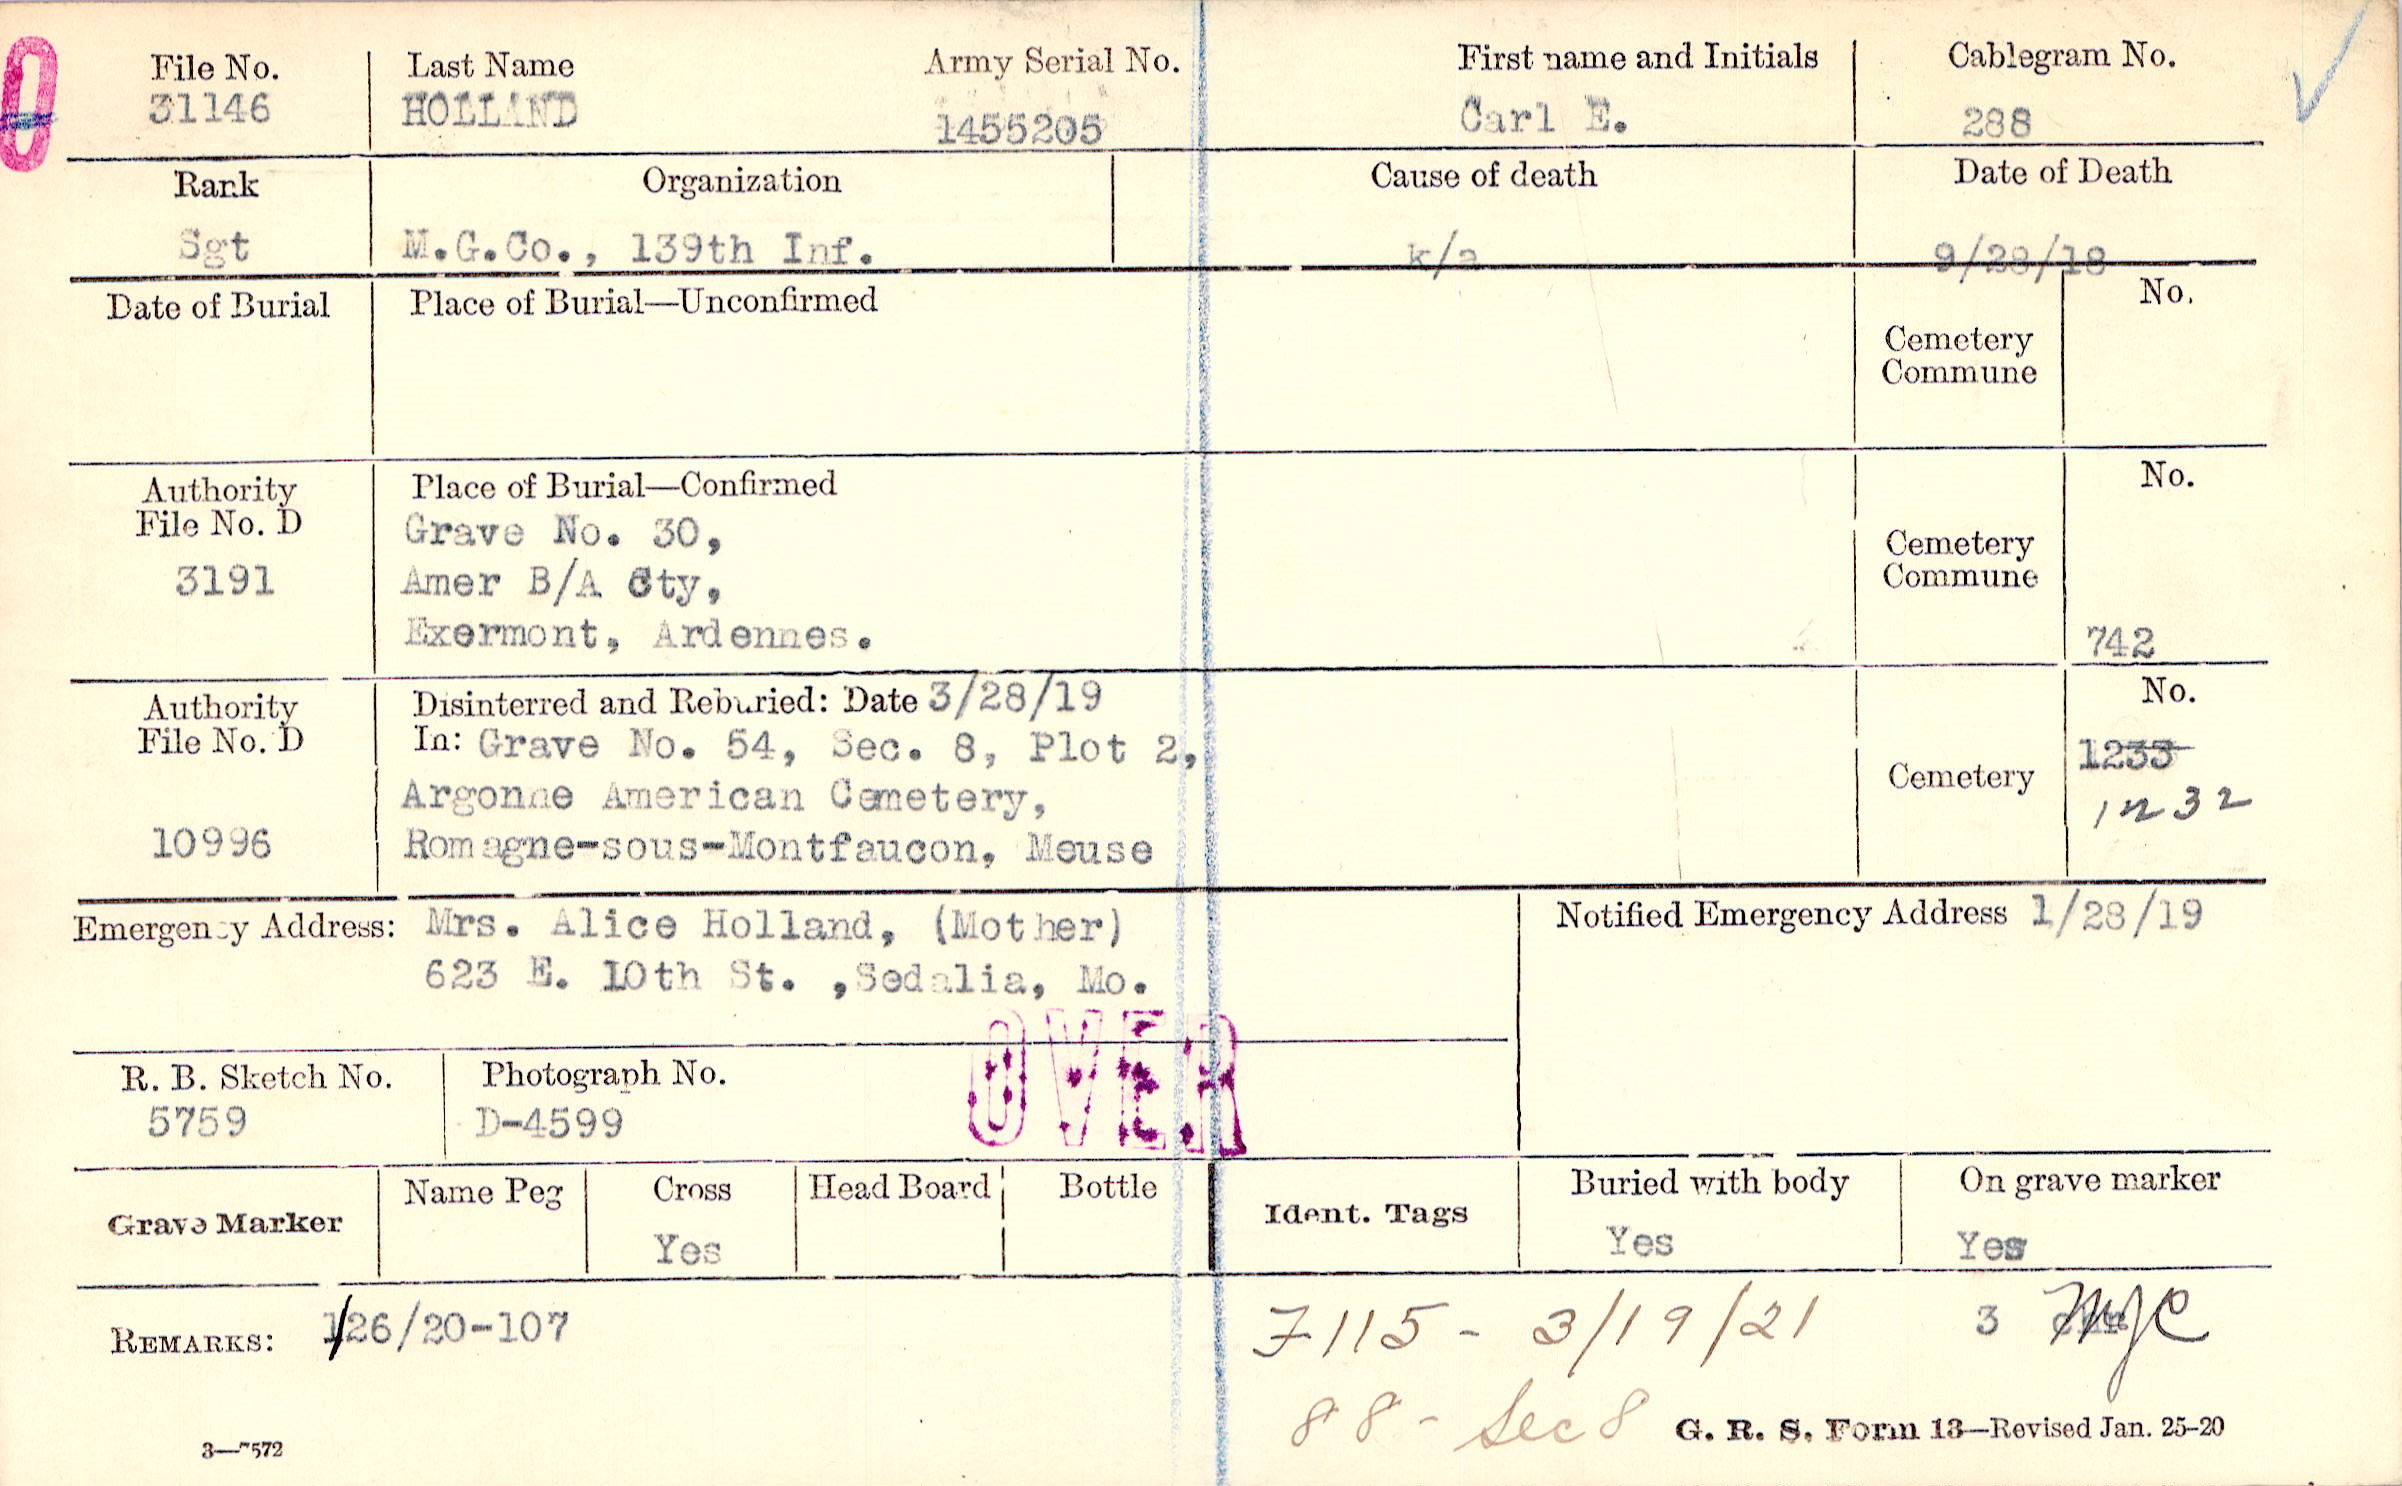 File No. Last Name Army Serial No. First name and Initials Cablegram No.
31146 HOLLAND 1455205 Carl E. 288
Rank Organization Cause of death Date of Death
Sgt M.G.Co., 139th Inf. k/a 9/28/18
Date of Burial Place of Burial—Unconfirmed No.
Cemetery
Commune
Authority Place of Burial—Confirmed No.
File No. D Grave No. 30,
3191 Amer B/A Cty, Cemetery
Commune
Exermont, Ardennes. 742
Authority Disinterred and Reburied: Date 3/28/19 No.
File No. D In: Grave No. 54, Sec. 8, Plot 2, 1233
Argonne American Cemetery, Cemetery 1232
10996 Romagne-sous-Montfaucon, Meuse
Emergency Address: Mrs. Alice Holland, (Mother) Notified Emergency Address 1/28/19
623 E. 10th St. ,Sedalia, Mo.
OVER
R. B. Sketch No. Photograph No.
5759 D-4599
Grave Marker Name Peg Cross Head Board Bottle Ident. Tags Buried with body On grave marker
Yes Yes Yes
REMARKS: 1/26/20-107 7115 - 3/19/21 3
88 - Sec 8
3—7572 G. R. S. Form 13—Revised Jan. 25-20